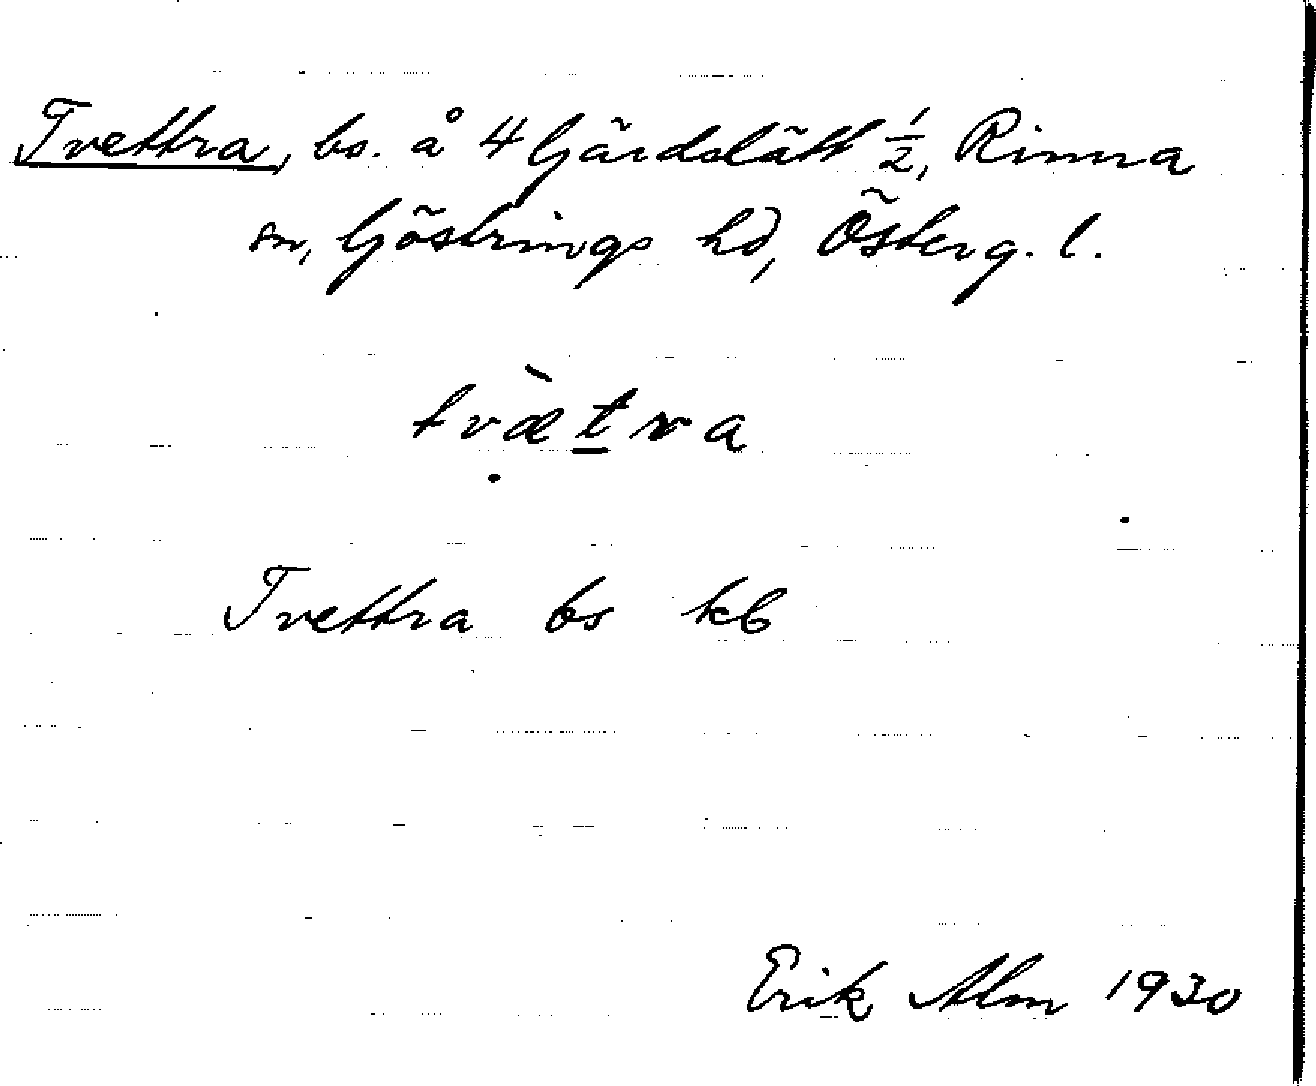 Tvettra, bs. å 4 Gjärdslätt 1/2, Rinna
sn, Göstrings hd, Österg. l.
tvæ̀tra
Tvettra bs kb
Erik Alm 1930